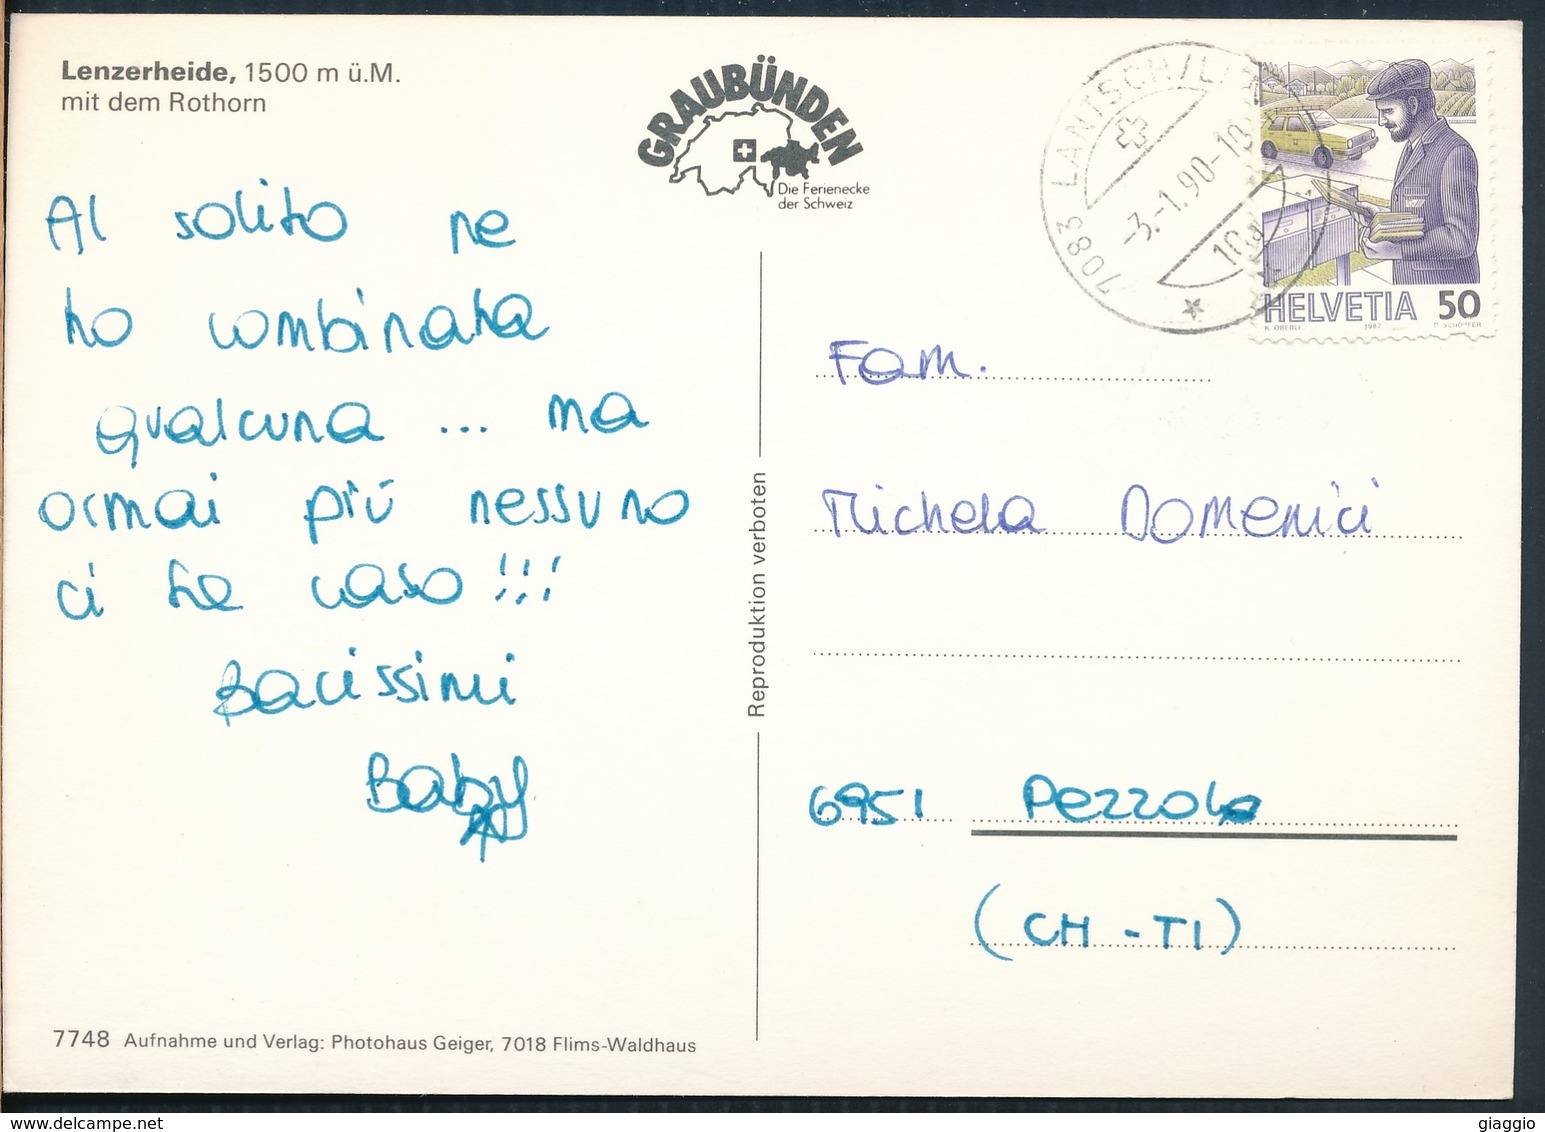 Lenzerheide, 1500 m ü.M.
mit dem Rothorn
GRAUBÜNDEN
Die Ferienecke
der Schweiz
7083 LANTSCH/L
-3.-1.90-10
10a
HELVETIA 50
K. OBERLI 1987 P. SCHOPFER
Al solito ne
ho combinata
qualcuna ... ma
ormai più nessuno
ci fa caso !!!
Bacissimi
Baby
Fam.
Michela Domenici
6951 Pezzola
(CH - TI)
Reproduktion verboten
7748 Aufnahme und Verlag: Photohaus Geiger, 7018 Flims-Waldhaus
giaggio